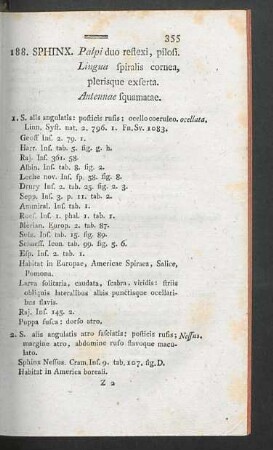 355
188. SPHINX. Palpi duo reflexi, pilosi.
Lingua spiralis cornea,
plerisque exserta.
Antennae squamatae.
1. S. alis angulatis: posticis rufis: ocello coeruleo. ocellata.
Linn. Syst. nat. 2. 796. 1. Fn. Sv. 1083.
Geoff Inf. 2. 79. 1.
Harr. Inf. tab. 5. fig. g. h.
Raj. Inf. 361. 58.
Albin. Inf. tab. 8. fig. 2.
Leche nov. Inf. sp. 38. fig. 8.
Drury Inf. 2. tab. 25. fig. 2. 3.
Sepp. Inf. 3. p. 11. tab. 2.
Ammiral. Inf. tab. 1.
Roes. Inf. 1. phal. 1. tab. 1.
Merian. Europ. 2. tab. 87.
Sulz. Inf. tab. 15. fig. 89.
Schaeff. Icon. tab. 99. fig. 5. 6.
Esp. Inf. 2. tab. 1.
Habitat in Europae, Americae Spiraea, Salice,
Pomona.
Larva solitaria, caudata, scabra, viridis: striis
obliquis lateralibus albis punctisque ocellari-
bus flavis.
Raj. Inf. 145. 2.
Puppa fusca: dorso atro.
2. S. alis angulatis atro fasciatis: posticis rufis; Nessus.
margine atro, abdomine rufo flavoque macu-
lato.
Sphinx Nessus. Cram. Inf. 9. tab. 107. fig. D.
Habitat in America boreali.
Z 2